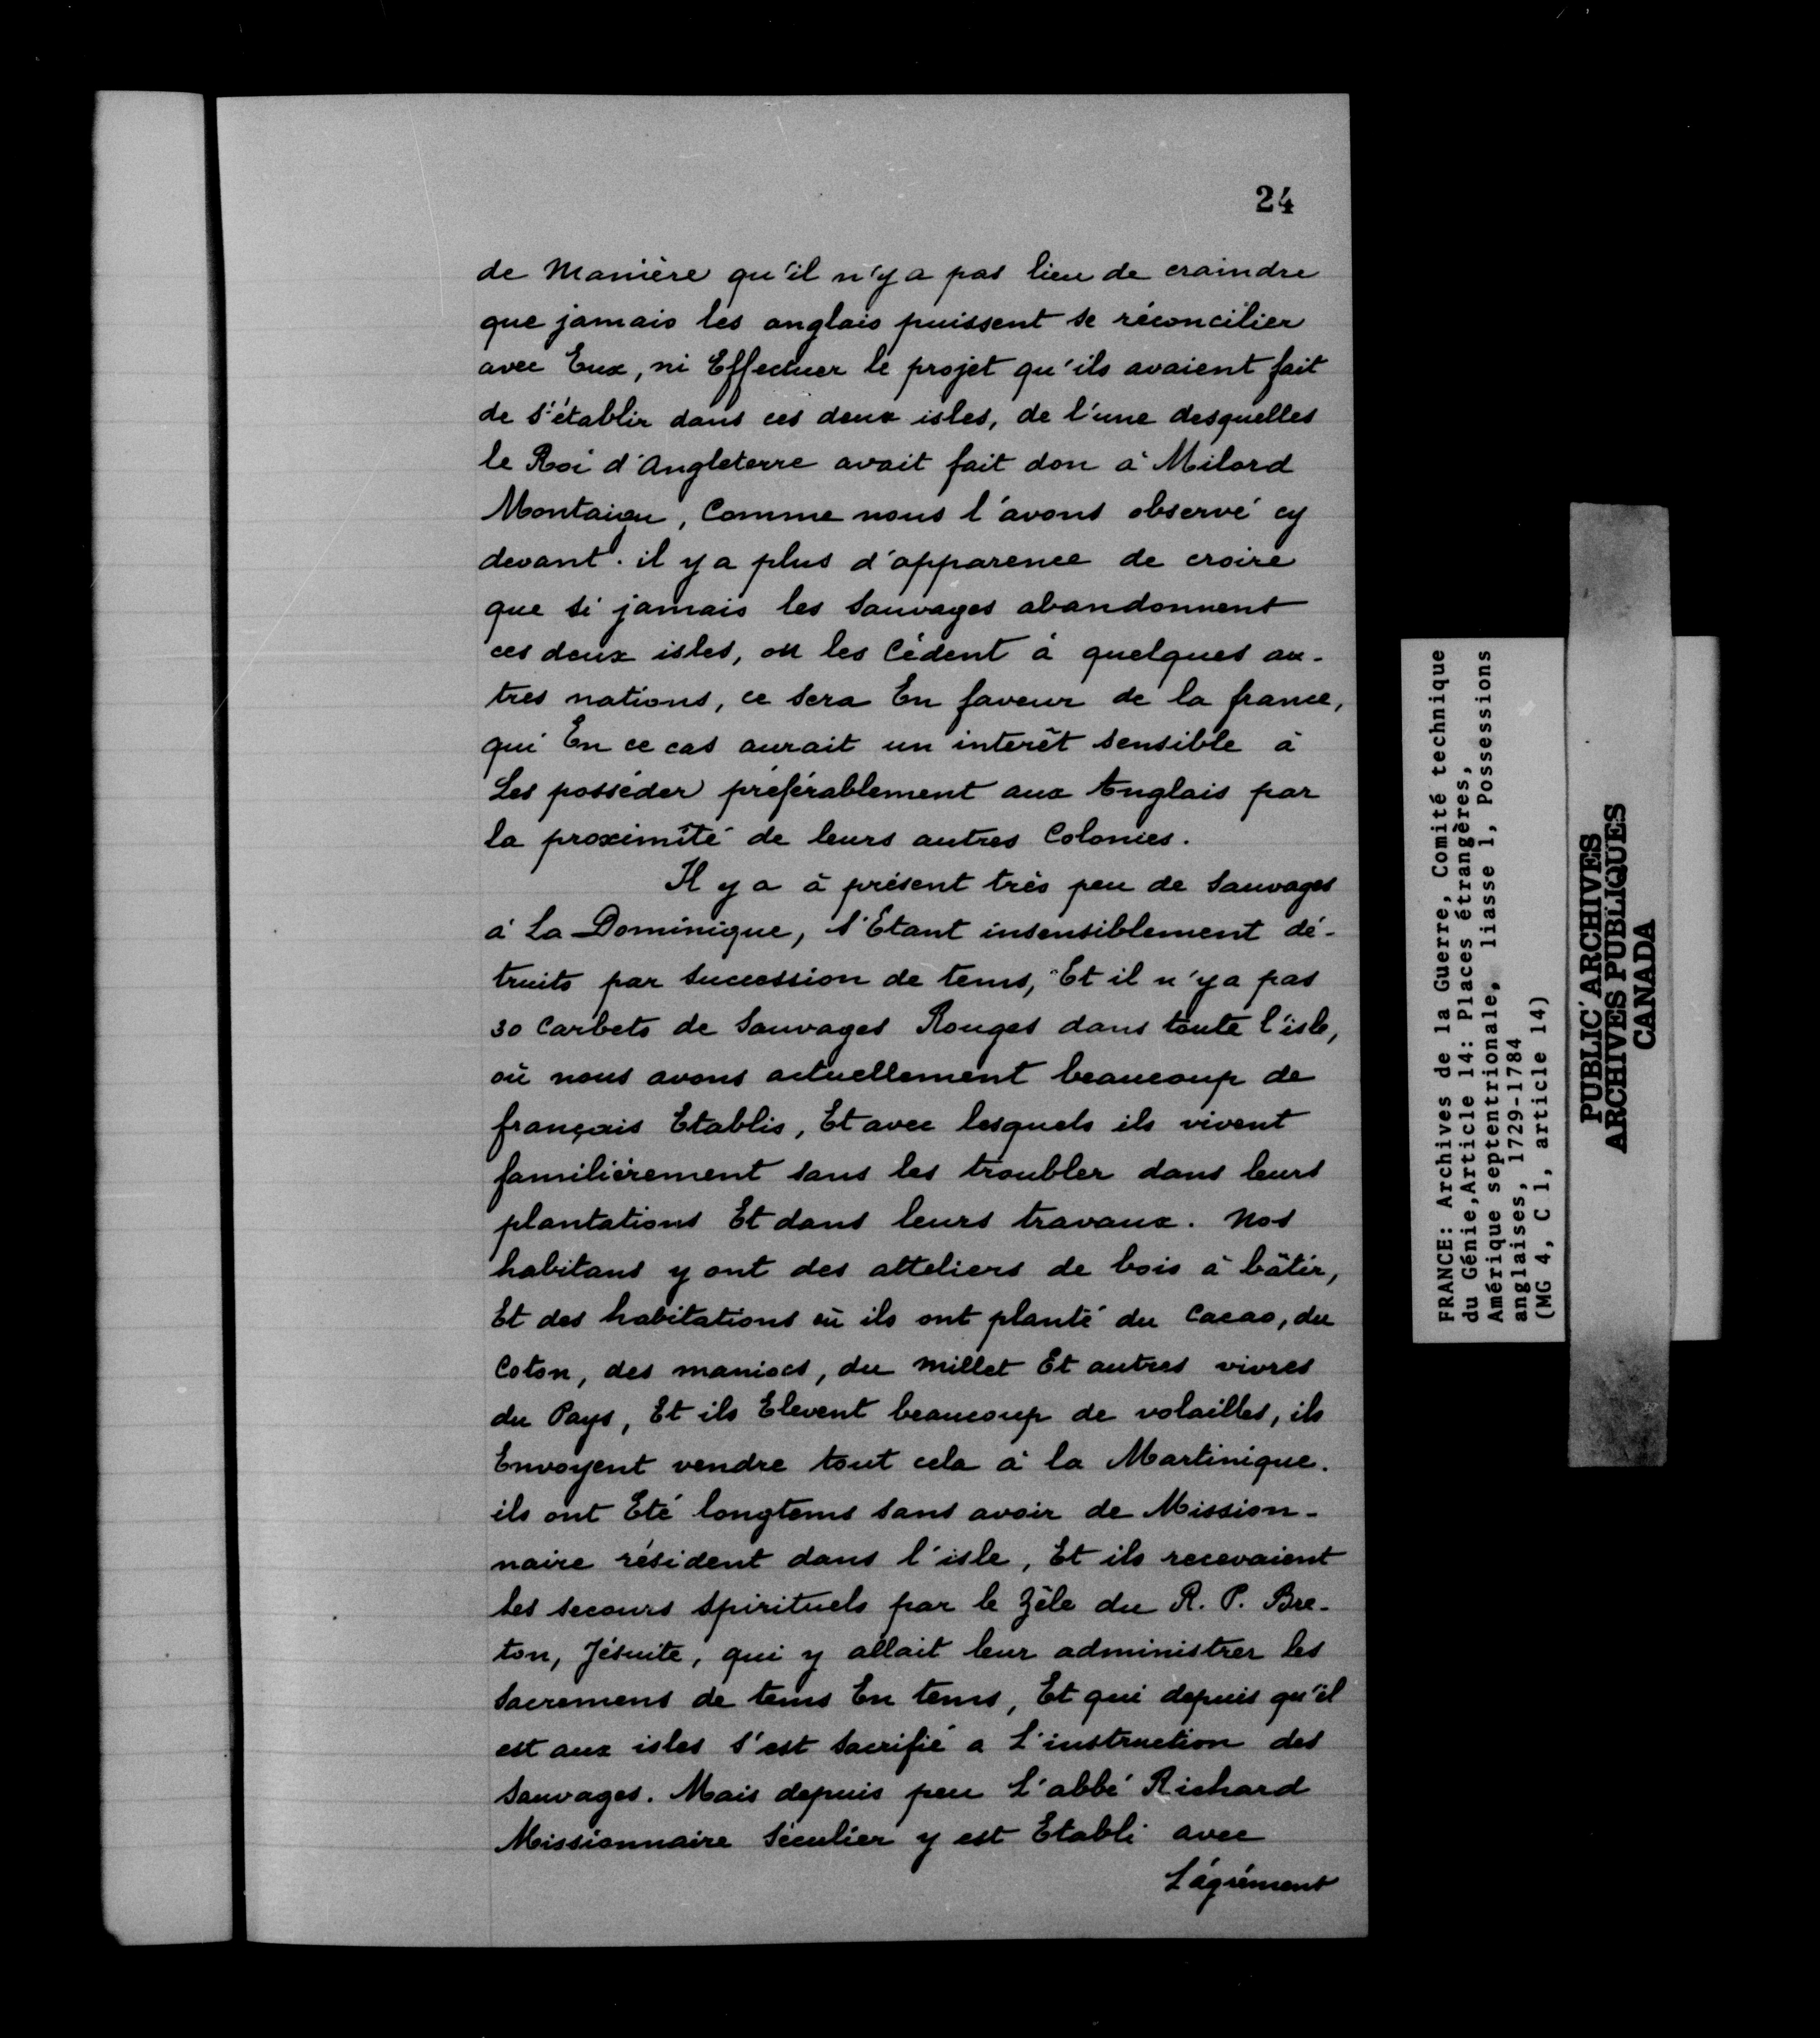 24
de Manière qu'il n'y a pas lieu de craindre
que jamais les anglais puissent se réconcilier
avec Eux, ni Effectuer le projet qu'ils avaient fait
de s'établir dans ces deux isles, de l'une desquelles
le Roi d'Angleterre avait fait don à Milord
Montaigu, Comme nous l'avons observé cy
devant. il y a plus d'apparence de croire
que si jamais les Sauvages abandonnent
ces deux isles, ou les Cèdent à quelques au-
tres nations, ce sera En faveur de la france,
qui En ce cas aurait un interêt sensible à
Les posséder préférablement aux Anglais par
la proximité de leurs autres Colonies.
Il y a à présent très peu de Sauvages
à La Dominique, s'Etant insensiblement dé-
truits par succession de tems, Et il n'y a pas
30 Carbets de Sauvages Rouges dans toute l'isle,
où nous avons actuellement beaucoup de
français Etablis, Et avec lesquels ils vivent
familièrement sans les troubler dans leurs
plantations Et dans leurs travaux. Nos
habitans y ont des atteliers de bois à bâtir,
Et des habitations où ils ont planté du Cacao, du
Coton, des maniocs, du millet Et autres vivres
du Pays, Et ils Elevent beaucoup de volailles, ils
Envoyent vendre tout cela à la Martinique.
ils ont Eté longtems sans avoir de Mission-
naire résident dans l'isle, Et ils recevaient
les secours spirituels par le Zèle du R. P. Bre-
ton, Jésuite, qui y allait leur administrer les
Sacremens de tems En tems, Et qui depuis qu'il
est aux isles s'est sacrifié a L'instruction des
Sauvages. Mais depuis peu L'abbé Richard
Missionnaire Séculier y est Etabli avec
L'agrément
FRANCE: Archives de la Guerre, Comité technique
du Génie, Article 14: Places étrangères,
Amérique septentrionale, liasse 1, Possessions
anglaises, 1729-1784
(MG 4, C 1, article 14)
PUBLIC ARCHIVES
ARCHIVES PUBLIQUES
CANADA